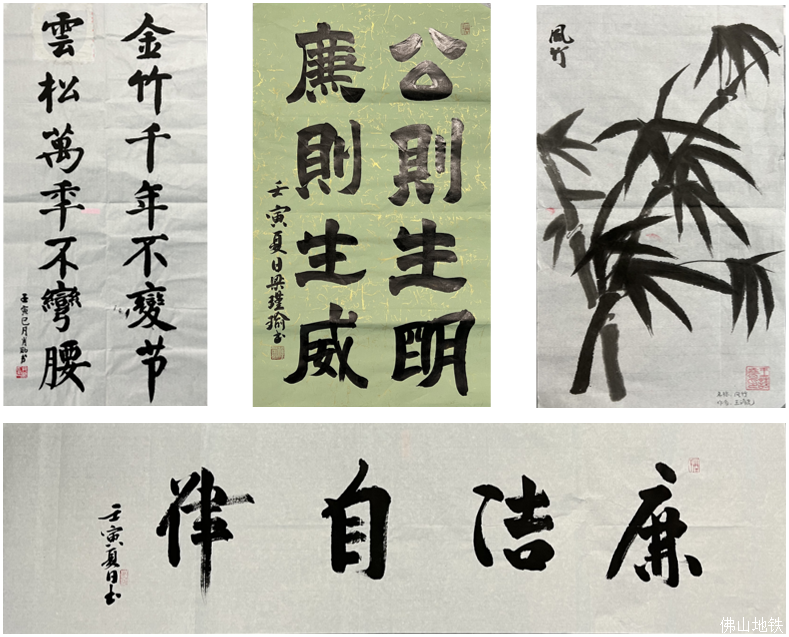 金竹千年不變节
雲松萬年不彎腰
公則生明
廉則生威
壬寅夏日梁瑾瑜书
風竹
廉洁自律
壬寅夏日书
佛山地铁